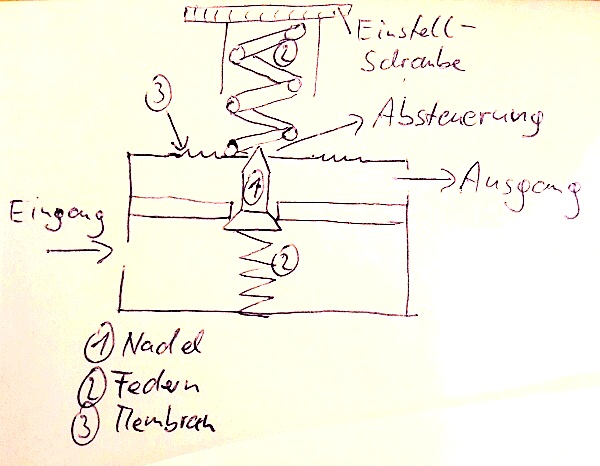 Einstell-
Schraube
②
③
Absteuerung
①
Ausgang
Eingang
②
① Nadel
② Federn
③ Membran